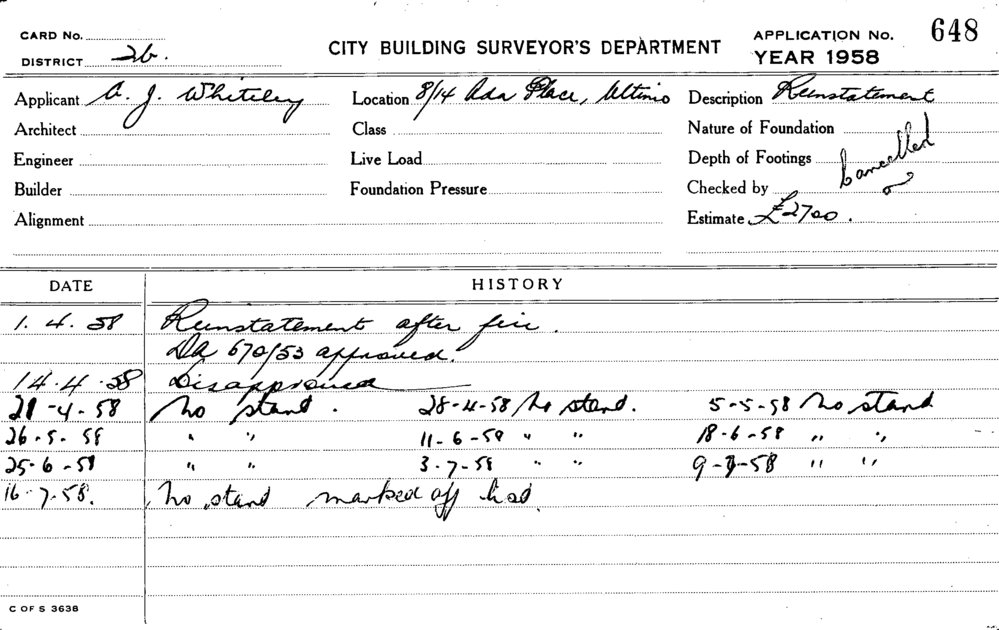 CARD No.
DISTRICT 2b.
CITY BUILDING SURVEYOR'S DEPARTMENT
APPLICATION No. 648
YEAR 1958
Applicant A. J. Whiteley Location 8/14 Ada Place, Ultimo Description Reinstatement
Architect Class Nature of Foundation
Engineer Live Load Depth of Footings
Cancelled
Builder Foundation Pressure Checked by
Alignment Estimate £2700.
DATE HISTORY
1. 4. 58 Reinstatement after fire.
DA 670/53 approved.
14. 4. 58 Disapproved
21-4-58 No stand. 28-4-58 No stand. 5-5-58 No stand
26-5-58 " " 11-6-58 " " 18-6-58 " "
25-6-58 " " 3-7-58 " " 9-7-58 " "
16-7-58. No stand marked off list.
C OF S 3638